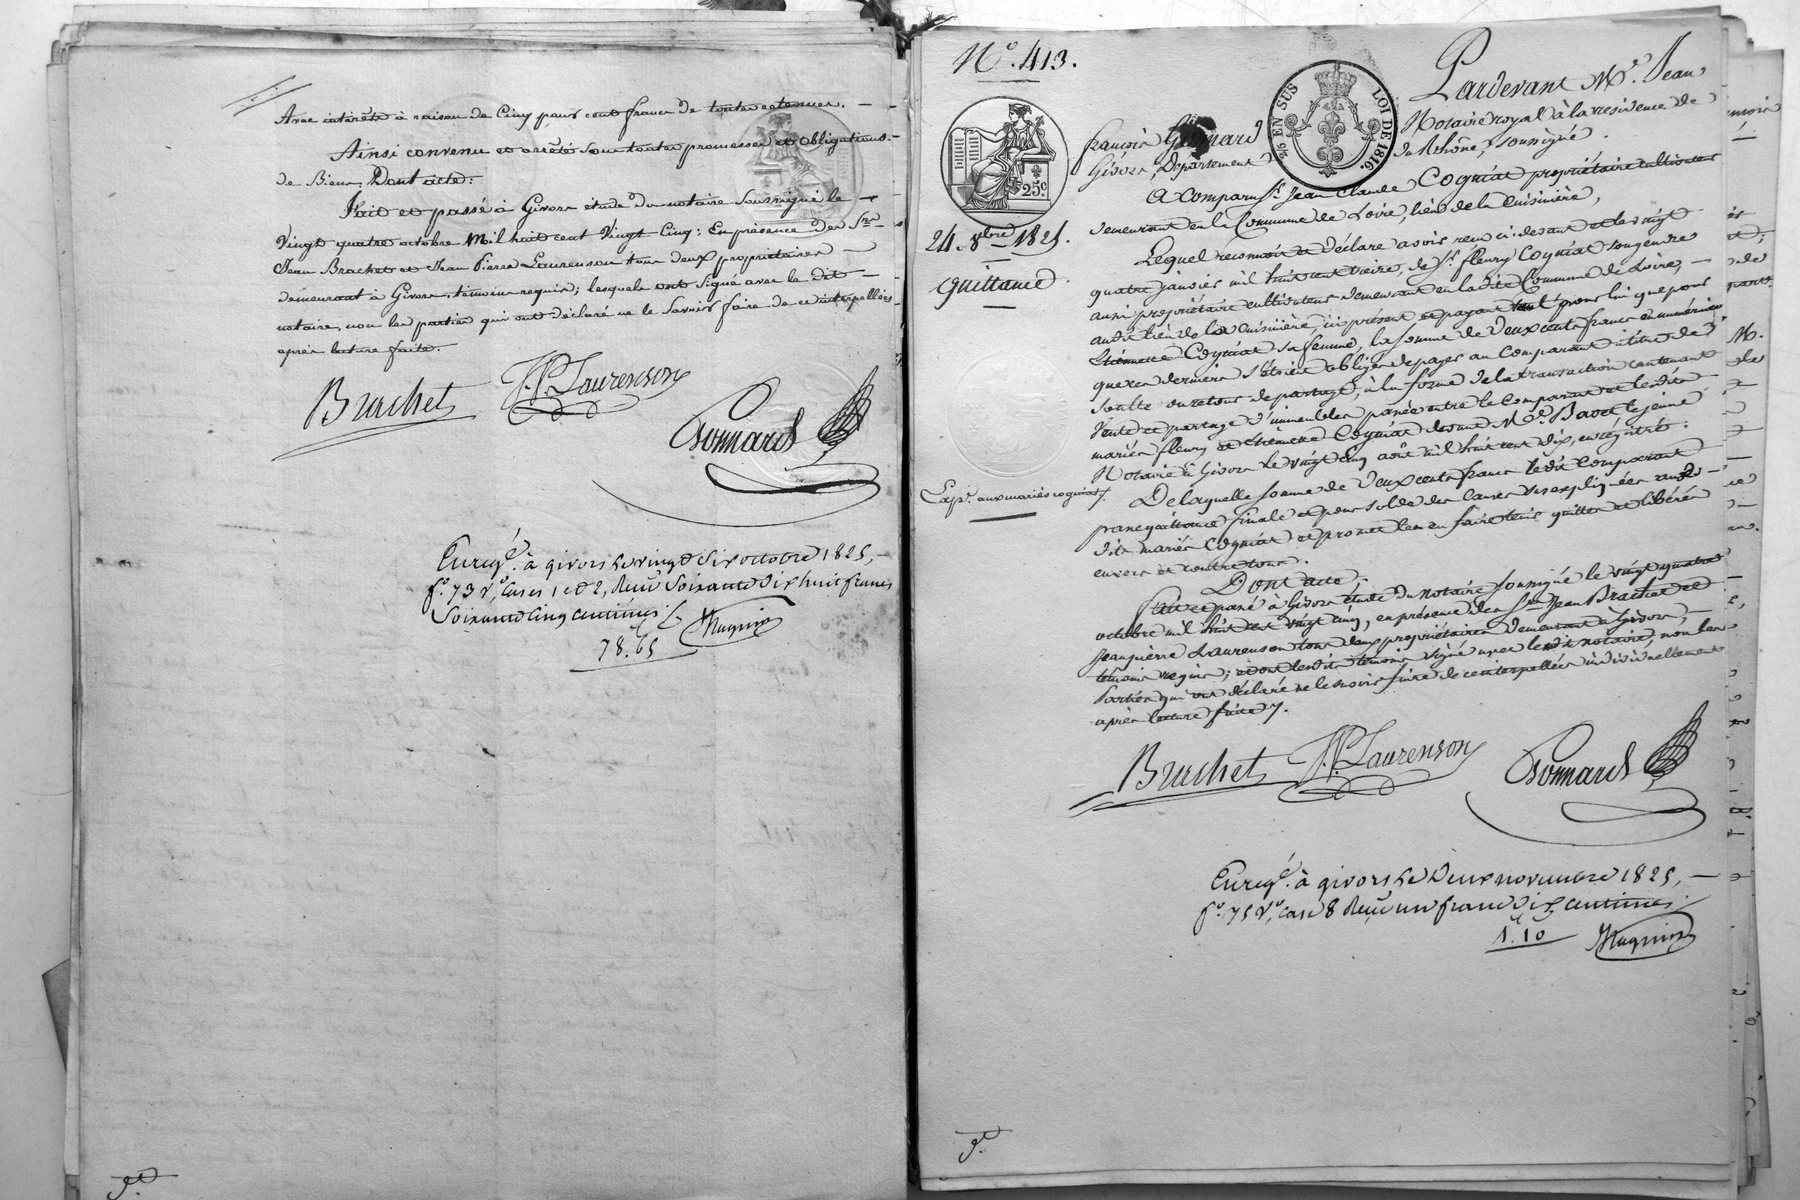 Avec intérêts à raison de Cinq pour cent franc de toutes retenues. —
Ainsi convenu et arrêté sous toutes promesses et obligations
de Biens. Dont acte:
Fait et passé à Givors étude du notaire soussigné le —
Vingt quatre octobre Mil huit cent Vingt Cinq: En présence des Srs
Jean Brachet et Jean Pierre Laurenson tous deux propriétaires —
demeurant à Givors, témoins requis; lesquels ont Signé avec le dit —
notaire, non les parties qui ont déclaré ne le Savoir faire de ce interpellées
après lecture faite.
Brachet
J.P. Laurenson
Bonnard
Enregé. à givors le vingt Six octobre 1825, —
fo. 73 Vo, Cases 1 et 2, Reçu Soixante dix huit francs
Soixante Cinq Centimes
78.65
No. 413.
25c
25 EN SUS
LOI DE 1816.
24 8bre 1825.
Quittance
Expn. aux mariés cogniat
Pardevant Me. Jean
françois Bonnard Notaire royal à la résidence de
Givors, Département du Rhône, soussigné.
A comparu Sr. Jean Claude Cogniat propriétaire cultivateur
demeurant en la Commune de Loire, lieu de la Cuisinière,
Lequel reconnoit et déclare avoir reçu ci-devant et le vingt
quatre janvier mil huit cent treize, de Sr. fleury Cogniat son gendre
aussi propriétaire cultivateur demeurant en la dite Commune de Loire, —
audit lieu de la Cuisinière, ici présent et payant tant pour lui que pour
Etiennette Cogniat sa femme, la somme de Deux cents francs en numéraire
que ces derniers s'étoient obligés de payer au Comparant à titre de
soulte ou retour de partage, à la forme de la transaction contenant
Vente et partage d'immeubles passée entre le Comparant et les dits
mariés fleury et Etiennette Cogniat devant Me. Bavet le jeune
Notaire à Givors le vingt Cinq août mil huit cent dix, enregistré.
De laquelle somme de Deux cents francs le dit Comparant
passe quittance finale et pour solde des Causes sus expliquées aux
dits mariés Cogniat et promet les en faire tenir quittes et libérés
envers et contre tous.
Dont acte,
Fait et passé à Givors étude du notaire soussigné le vingt quatre
octobre mil huit cent vingt cinq, en présence des Srs Jean Brachet et
Jean pierre Laurenson tous deux propriétaires demeurant à Givors,
témoins requis; et ont les dits témoins signé avec le dit notaire, non les
parties qui ont déclaré ne le savoir faire de ce interpellées individuellement
après lecture faite.
Brachet
J.P. Laurenson
Bonnard
Enregé. à givors le Deux novembre 1825, —
fo. 75 Vo, case 8 Reçu un franc Dix centimes.
1.10